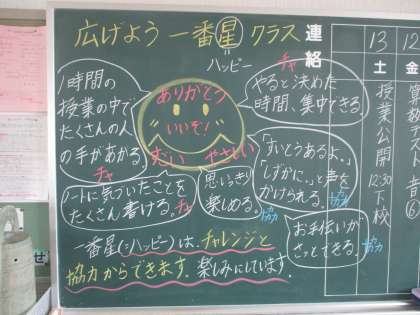 広げよう 一番星 クラス
ハッピー
1時間の
授業の中で
たくさんの人
の手があがる。
チャ
ありがとう
いいぞ!
すごい やさしい
チャ
やると決めた
時間、集中できる
ノートに気づいたことを
たくさん書ける。チャ
思いっきり
楽しめる。
「すいとうあるよ。」
「しずかに。」と声を
かけられる。協力
お手伝いが
さっとできる。協力
一番星(=ハッピー)は、チャレンジと
協力からできます。楽しみにしています。
連絡
13
土
授業公開
12:30 下校
12
金
算数
⑥